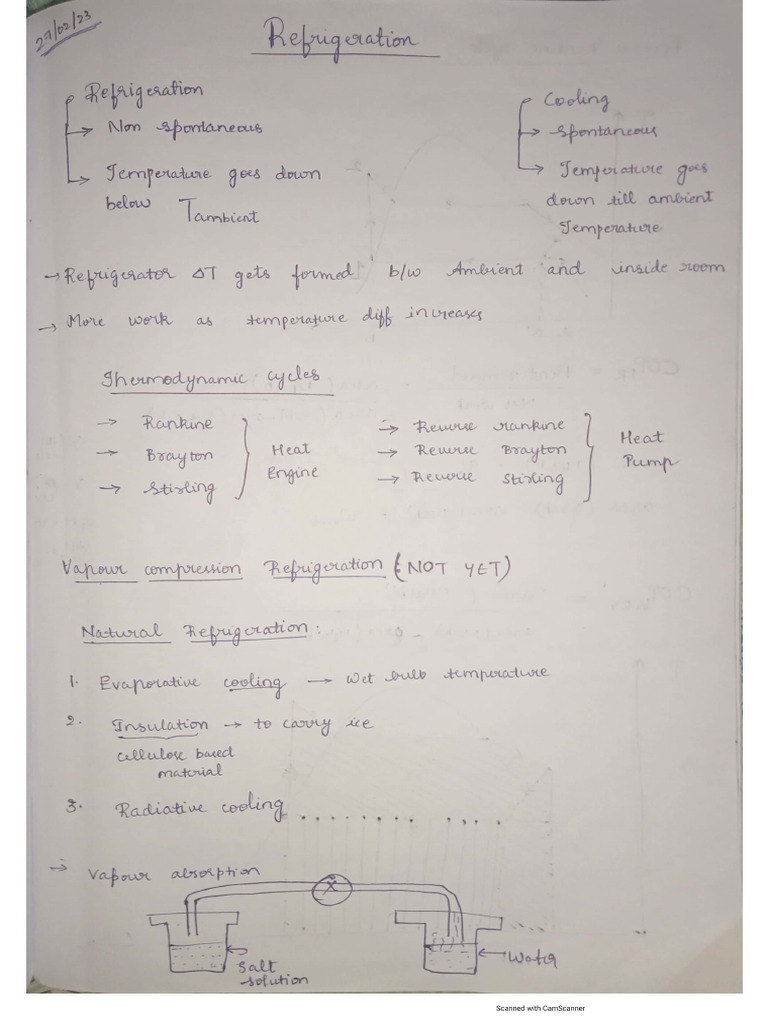 27/02/23
Refrigeration
Refrigeration
→ Non spontaneous
→ Temperature goes down
below Tambient
Cooling
→ spontaneous
→ Temperature goes
down till ambient
Temperature
→ Refrigerator ΔT gets formed b/w Ambient and inside room
→ More work as temperature diff increases
Thermodynamic cycles
→ Rankine
→ Brayton
→ Stirling
Heat
Engine
→ Reverse rankine
→ Reverse Brayton
→ Reverse Stirling
Heat
Pump
Vapour compression Refrigeration (NOT YET)
Natural Refrigeration:
1. Evaporative cooling → Wet bulb temperature
2. Insulation → to carry ice
cellulose based
material
3. Radiative cooling
→ Vapour absorption
X
Salt
solution
Water
Scanned with CamScanner